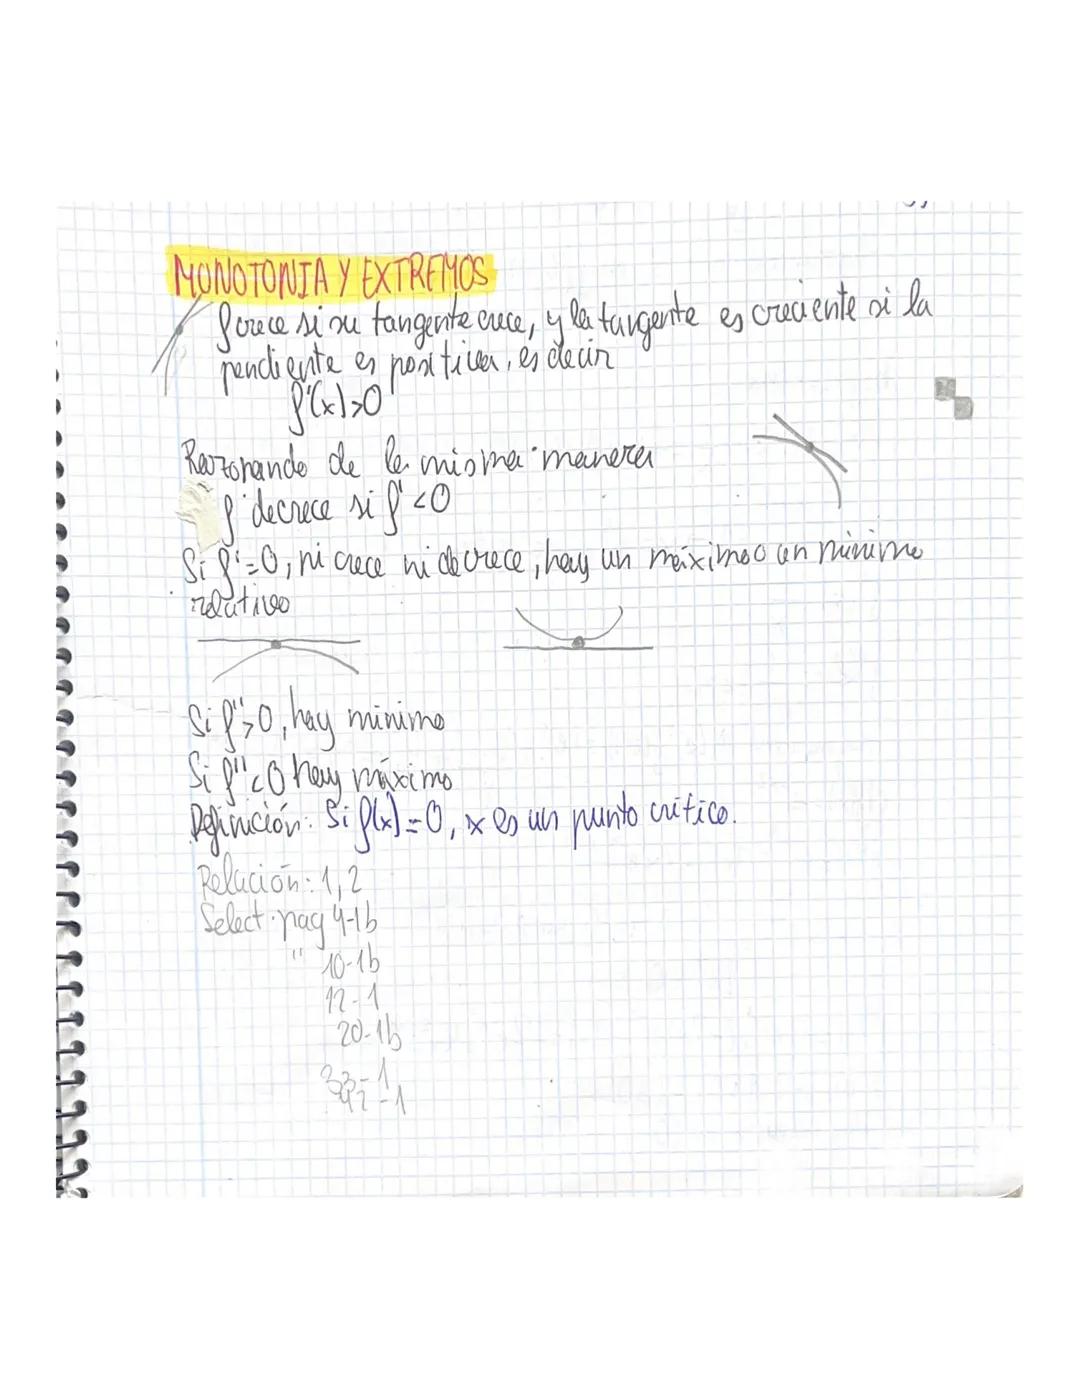 MONOTONIA Y EXTREMOS
f crece si su tangente crece, y la tangente es creciente si la
pendiente es positiva, es decir
f'(x)>0
Razonando de la misma manera
f decrece si f' <0
Si f'=0, ni crece ni decrece, hay un máximo o un mínimo
relativo
Si f''>0, hay mínimo
Si f''<0 hay máximo
Definición: Si f(x)=0, x es un punto crítico.
Relación: 1, 2
Select. pag 4-1b
" 10-1b
12-1
20-1b
33-1
42-1